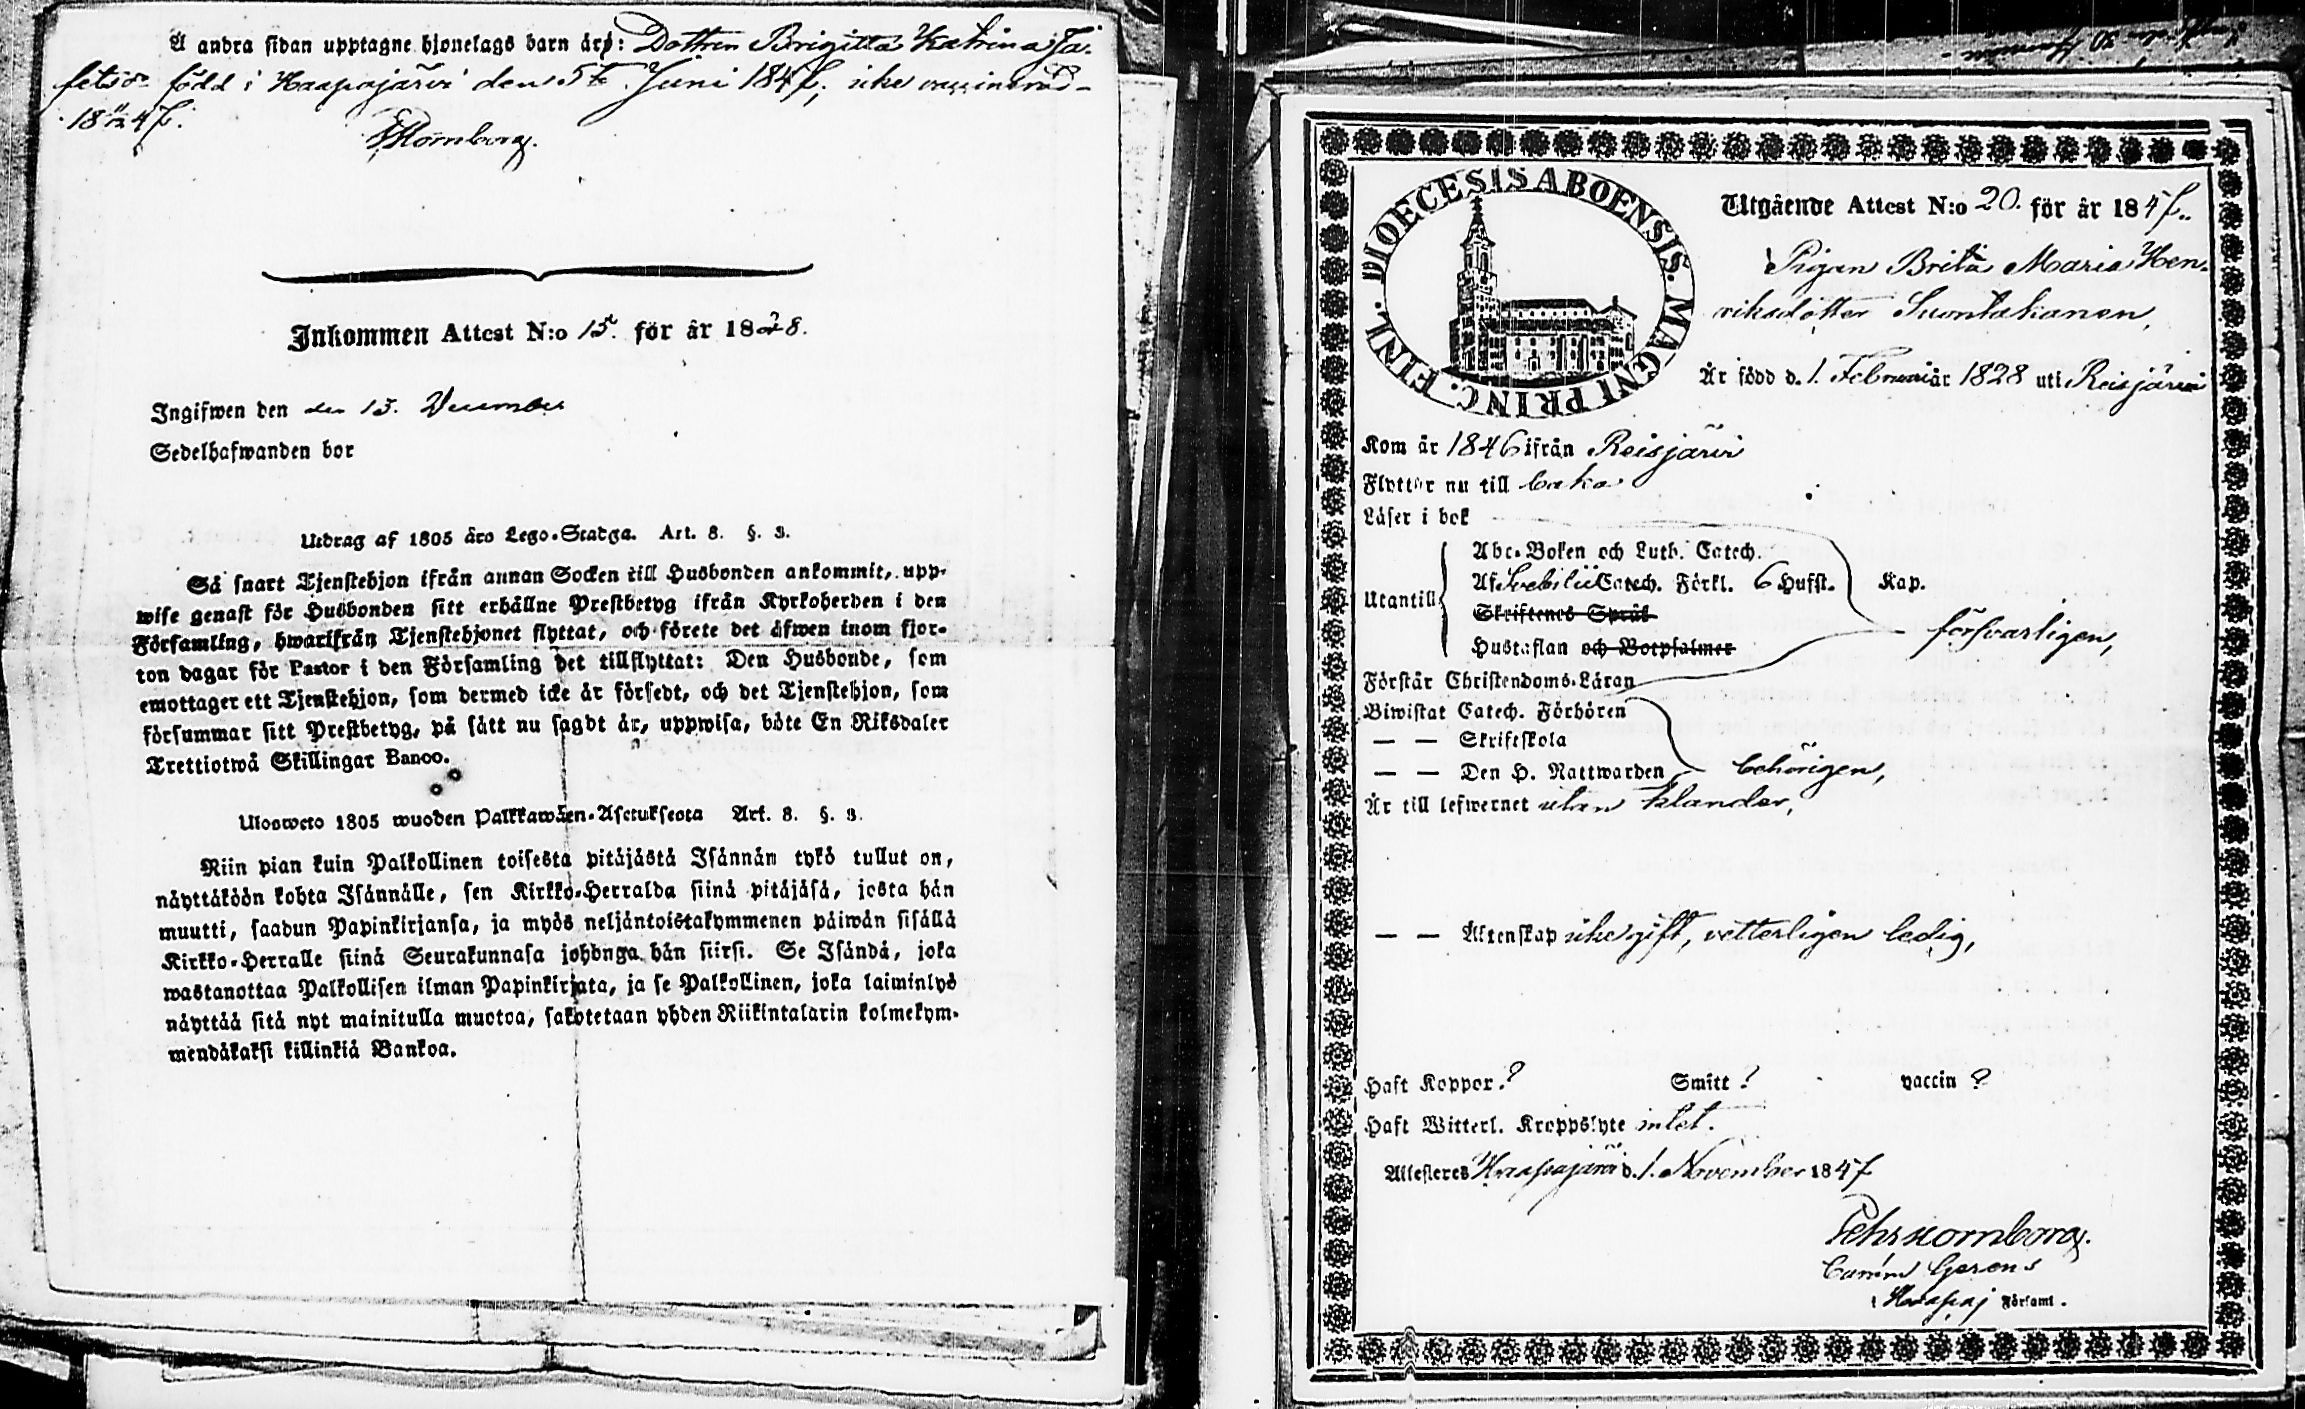 Å andra sidan upptagne hjonelags barn äro: Dottren Brigitta Katrina Ja-
fetsdr född i Haapajärvi den 5te Juni 1847, icke vaccinerad
Stornborg.
Inkommen Attest N:o 15. för år 18
Ingifwen den den 13. December
Sedelhafwanden bor
Utdrag af 1805 års Lego-Stadga. Art. 8. §. 3.
Så snart Tjenstehjon ifrån annan Socken till Husbonden ankommit, upp-
wise genast för Husbonden sitt erhållne Prestbetyg ifrån Kyrkoherden i den
Församling, hwarifrån Tjenstehjonet flyttat, och förete det äfwen inom fjor-
ton dagar för Pastor i den Församling det tillflyttat: Den Husbonde, som
emottager ett Tjenstehjon, som dermed icke är försedt, och det Tjenstehjon, som
försummar sitt Prestbetyg, på sätt nu sagdt är, uppwisa, böte En Riksdaler
Trettiotwå Skillingar Banco.
Uloswеto 1805 wuoden Palkkawäen-Asetuksesta Art. 8. §. 3.
Niin pian kuin Palkollinen toisesta pitäjästä Isännän tykö tullut on,
näyttäköön kohta Isännälle, sen Kirkko-Herralda siinä pitäjäsä, josta hän
muutti, saadun Papinkirjansa, ja myös neljäntoistakymmenen päiwän sisällä
Kirkko-Herralle siinä Seurakunnasa johonga hän siirsi. Se Isändä, joka
wastanottaa Palkollisen ilman Papinkirjata, ja se Palkollinen, joka laiminlyö
näyttää sitä nyt mainitulla muotoa, sakotetaan yhden Riikintalarin kolmekym-
mendäkaksi killinkiä Bankoa.
DIOECESIS ABOENSIS. MAGNI PRINC. FINL.
Utgående Attest N:o 20. för år 1847.
Pigan Brita Maria Hen-
riksdotter Suontakanen,
Är född d. 1. Februari år 1828 uti Reisjärvi
Kom år 1846 ifrån Reisjärvi
Flyttar nu till
Läser i bok
Utantill
Abc-Boken och Luth. Catech.
Af Svebilii Catech. Förkl. 6 Hufst. Kap.
Skriftenes Språk
Hustaflan och Botpsalmer
försvarligen,
Förstår Christendoms-Läran
Biwistat Catech. Förhören
— — Skriftskola
— — Den H. Nattwarden behörigen,
Är till lefwernet utan klander,
— — Äktenskap icke gift, vetterligen ledig,
Haft Koppor ? Smitt ? vaccin ?
Haft Witterl. Kroppslyte intet.
Attesteres Haapajärvi d. 1. November 1847
Pehr Stornborg.
i Haapaj Församl.